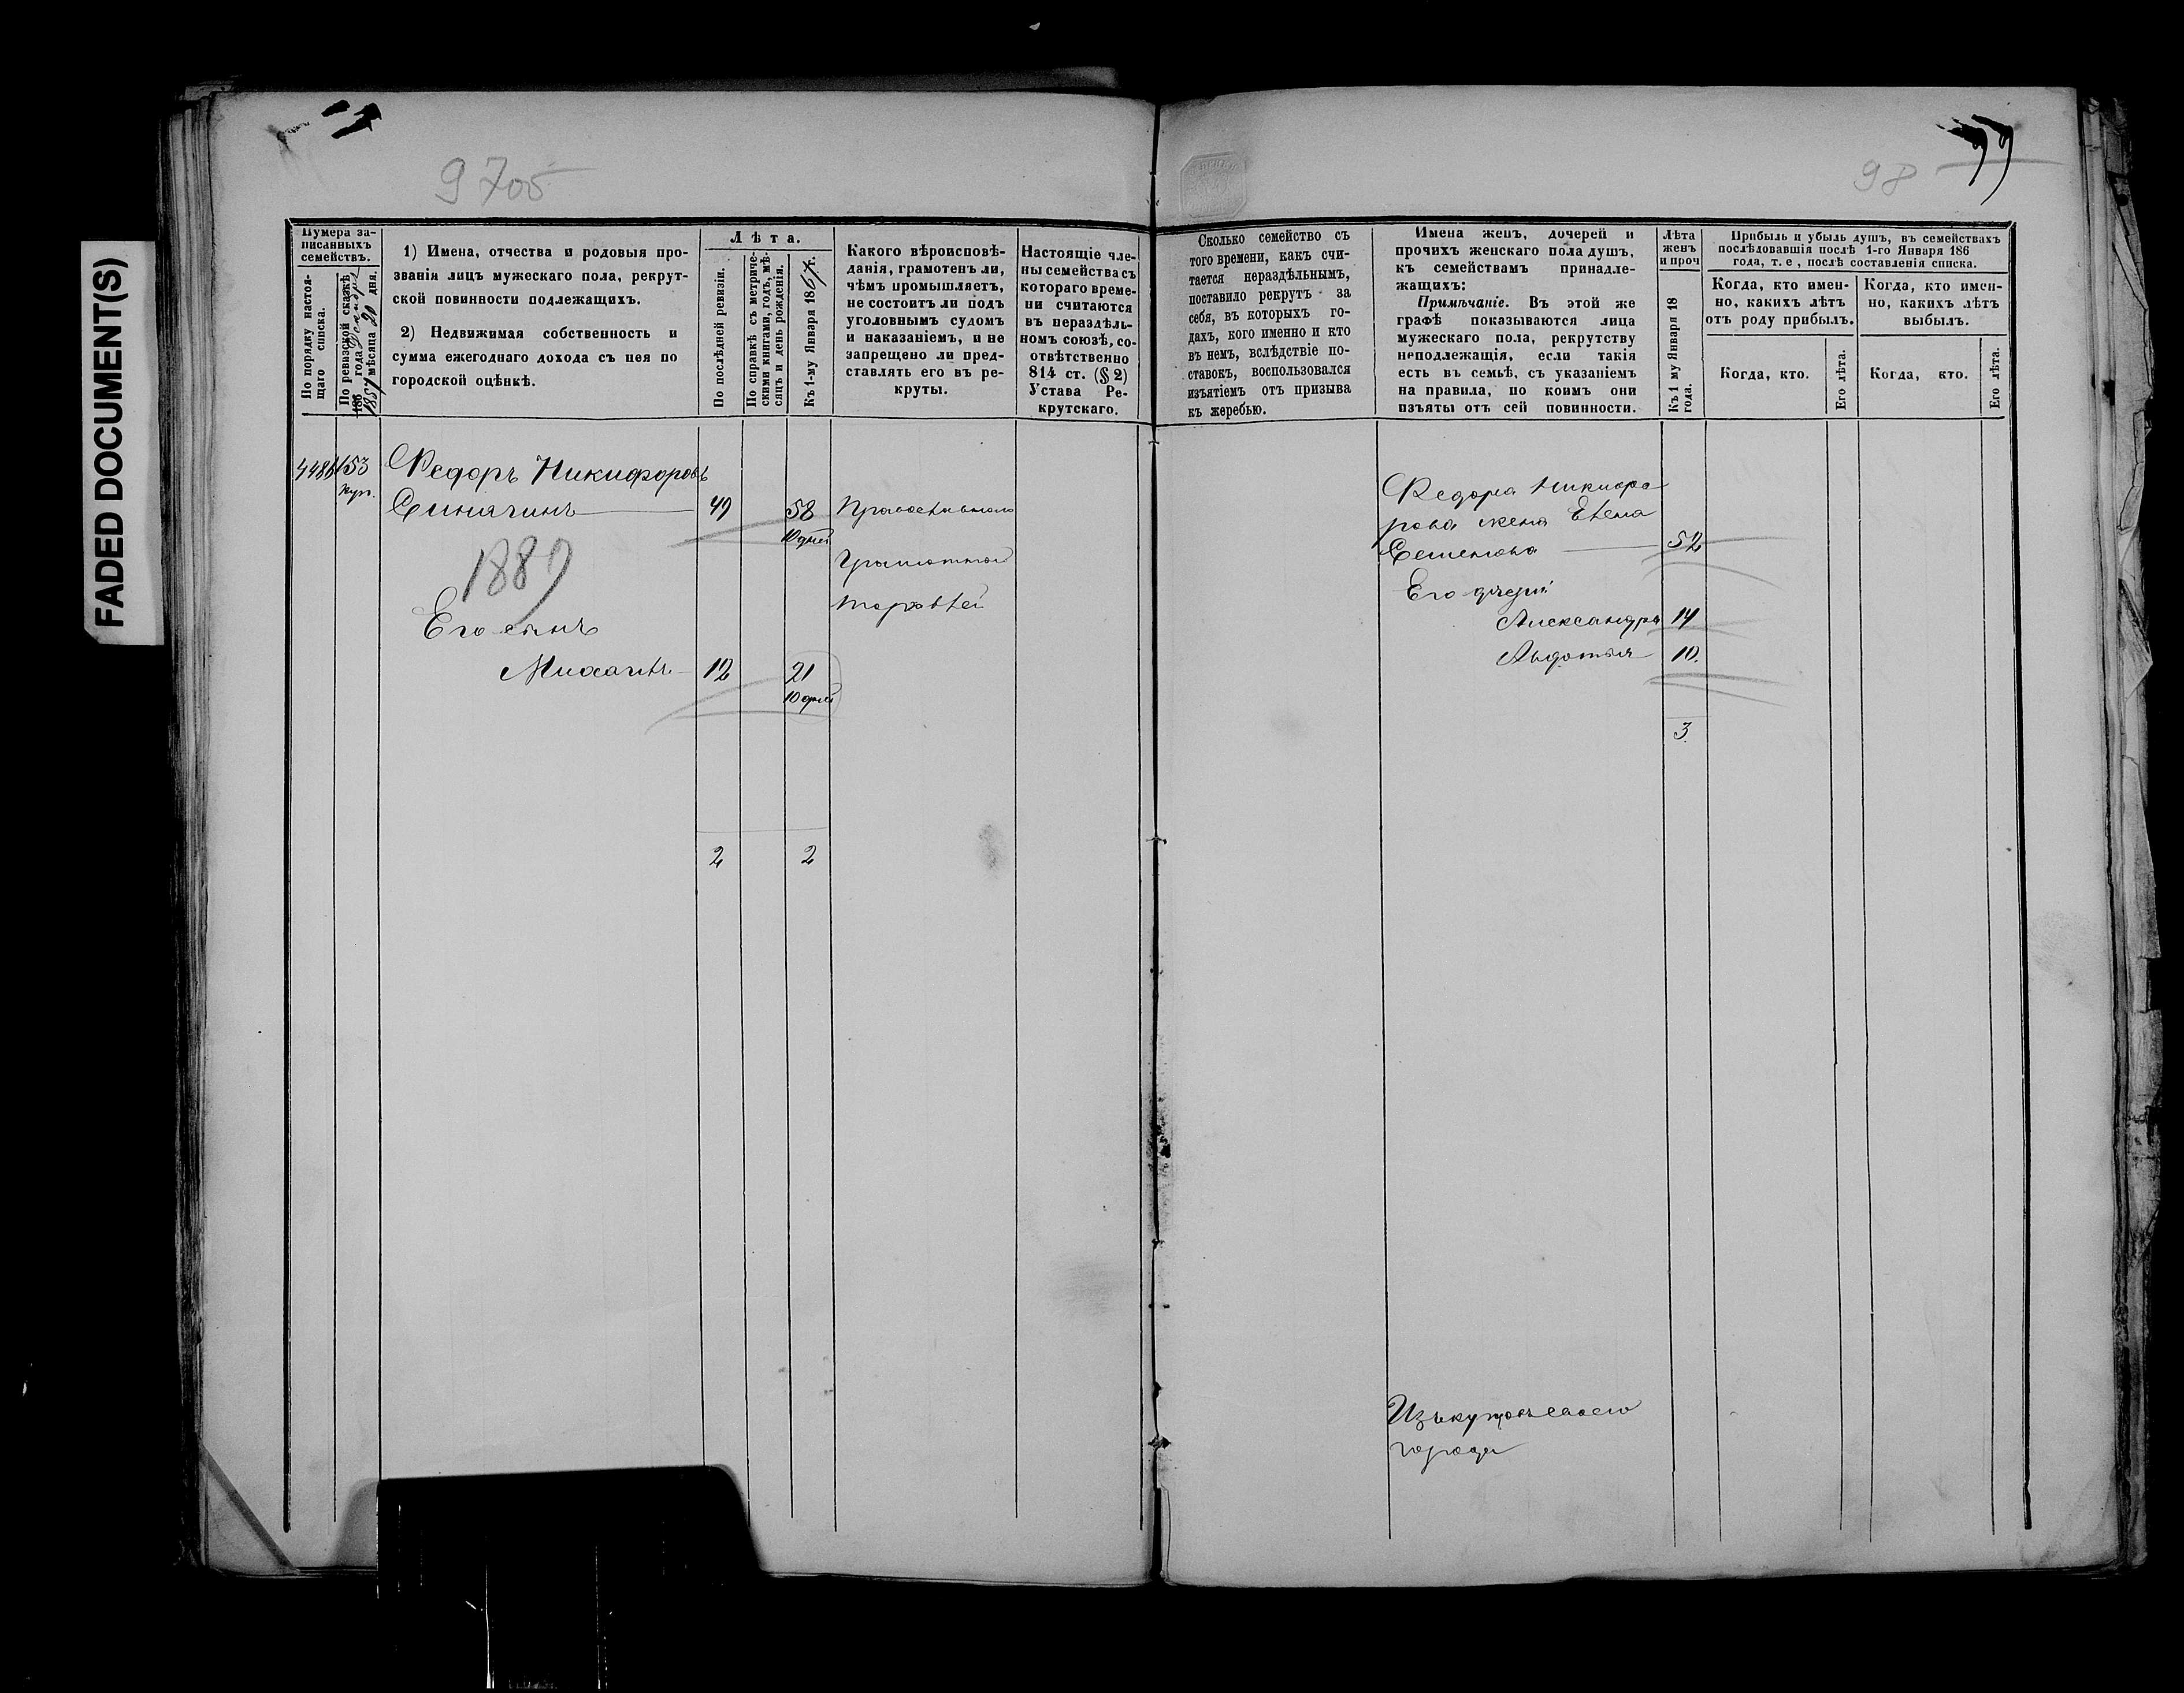 FADED DOCUMENT(S)
9705
98
Нумера за-
писанныхъ
семействъ.
По порядку настоя-
щаго списка.
По ревизской сказкѣ
186 года
1857 мѣсяца 20 дня.
1) Имена, отчества и родовыя про-
званія лицъ мужескаго пола, рекрут-
ской повинности подлежащихъ.
2) Недвижимая собственность и
сумма ежегоднаго дохода съ нея по
городской оцѣнкѣ.
Лѣта.
По послѣдней ревизіи.
По справкѣ съ метриче-
скими книгами, годъ, мѣ-
сяцъ и день рожденія.
Къ 1-му Января 1867 г.
Какого вѣроисповѣ-
данія, грамотенъ ли,
чѣмъ промышляетъ,
не состоитъ ли подъ
уголовнымъ судомъ
и наказаніемъ, и не
запрещено ли пред-
ставлять его въ ре-
круты.
Настоящіе чле-
ны семейства съ
котораго време-
ни считаются
въ нераздѣль-
номъ союзѣ, со-
отвѣтственно
814 ст. (§ 2)
Устава Ре-
крутскаго.
4486
153
куп.
Федоръ Никифоровъ
Синягинъ
49
58
10 дней
Православнаго
Грамотной
торговлей
1889
Его сынъ
Михаилъ
12
21
10 дней
2
2
Сколько семейство съ
того времени, какъ счи-
тается нераздѣльнымъ,
поставило рекрутъ за
себя, въ которыхъ го-
дахъ, кого именно и кто
въ немъ, вслѣдствіе по-
ставокъ, воспользовался
изъятіемъ отъ призыва
къ жеребью.
Имена женъ, дочерей и
прочихъ женскаго пола душъ,
къ семействамъ принадле-
жащихъ:
Примѣчаніе. Въ этой же
графѣ показываются лица
мужескаго пола, рекрутству
неподлежащія, если такія
есть въ семьѣ, съ указаніемъ
на правила, по коимъ они
изъяты отъ сей повинности.
Лѣта
женъ
и проч
Къ 1 му Января 18
года.
Прибыль и убыль душъ, въ семействахъ
послѣдовавшія послѣ 1-го Января 186
года, т. е, послѣ составленія списка.
Когда, кто имен-
но, какихъ лѣтъ
отъ роду прибылъ.
Когда, кто.
Его лѣта.
Когда, кто имен-
но, какихъ лѣтъ
выбылъ.
Когда, кто.
Его лѣта.
Федора Никифо
рова жена Елена
Семенова
52
Его дочери
Александра 14
Авдотья 10.
3.
города